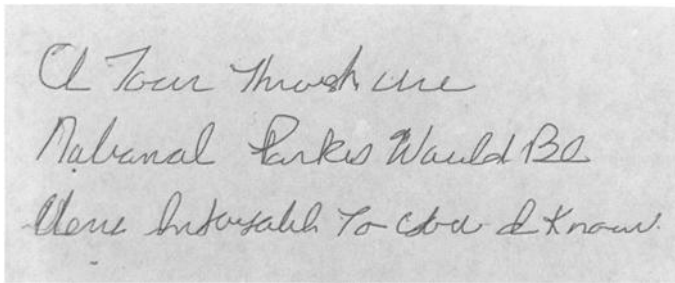 A Tour Throsh the
National Parks Would Be
Very Enjoyable To You I Know.